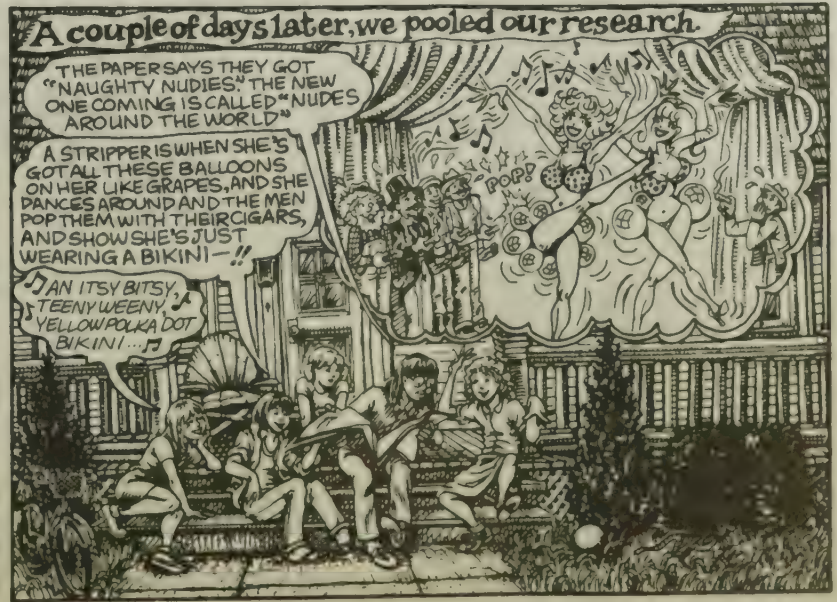 A couple of days later, we pooled our research.
THE PAPER SAYS THEY GOT
"NAUGHTY NUDIES." THE NEW
ONE COMING IS CALLED "NUDES
AROUND THE WORLD"
A STRIPPER IS WHEN SHE'S
GOT ALL THESE BALLOONS
ON HER LIKE GRAPES, AND SHE
DANCES AROUND AND THE MEN
POP THEM WITH THEIR CIGARS,
AND SHOW SHE'S JUST
WEARING A BIKINI—!!
♫ AN ITSY BITSY,
TEENY WEENY, ♪
♪ YELLOW POLKA DOT
BIKINI... ♫
POP!